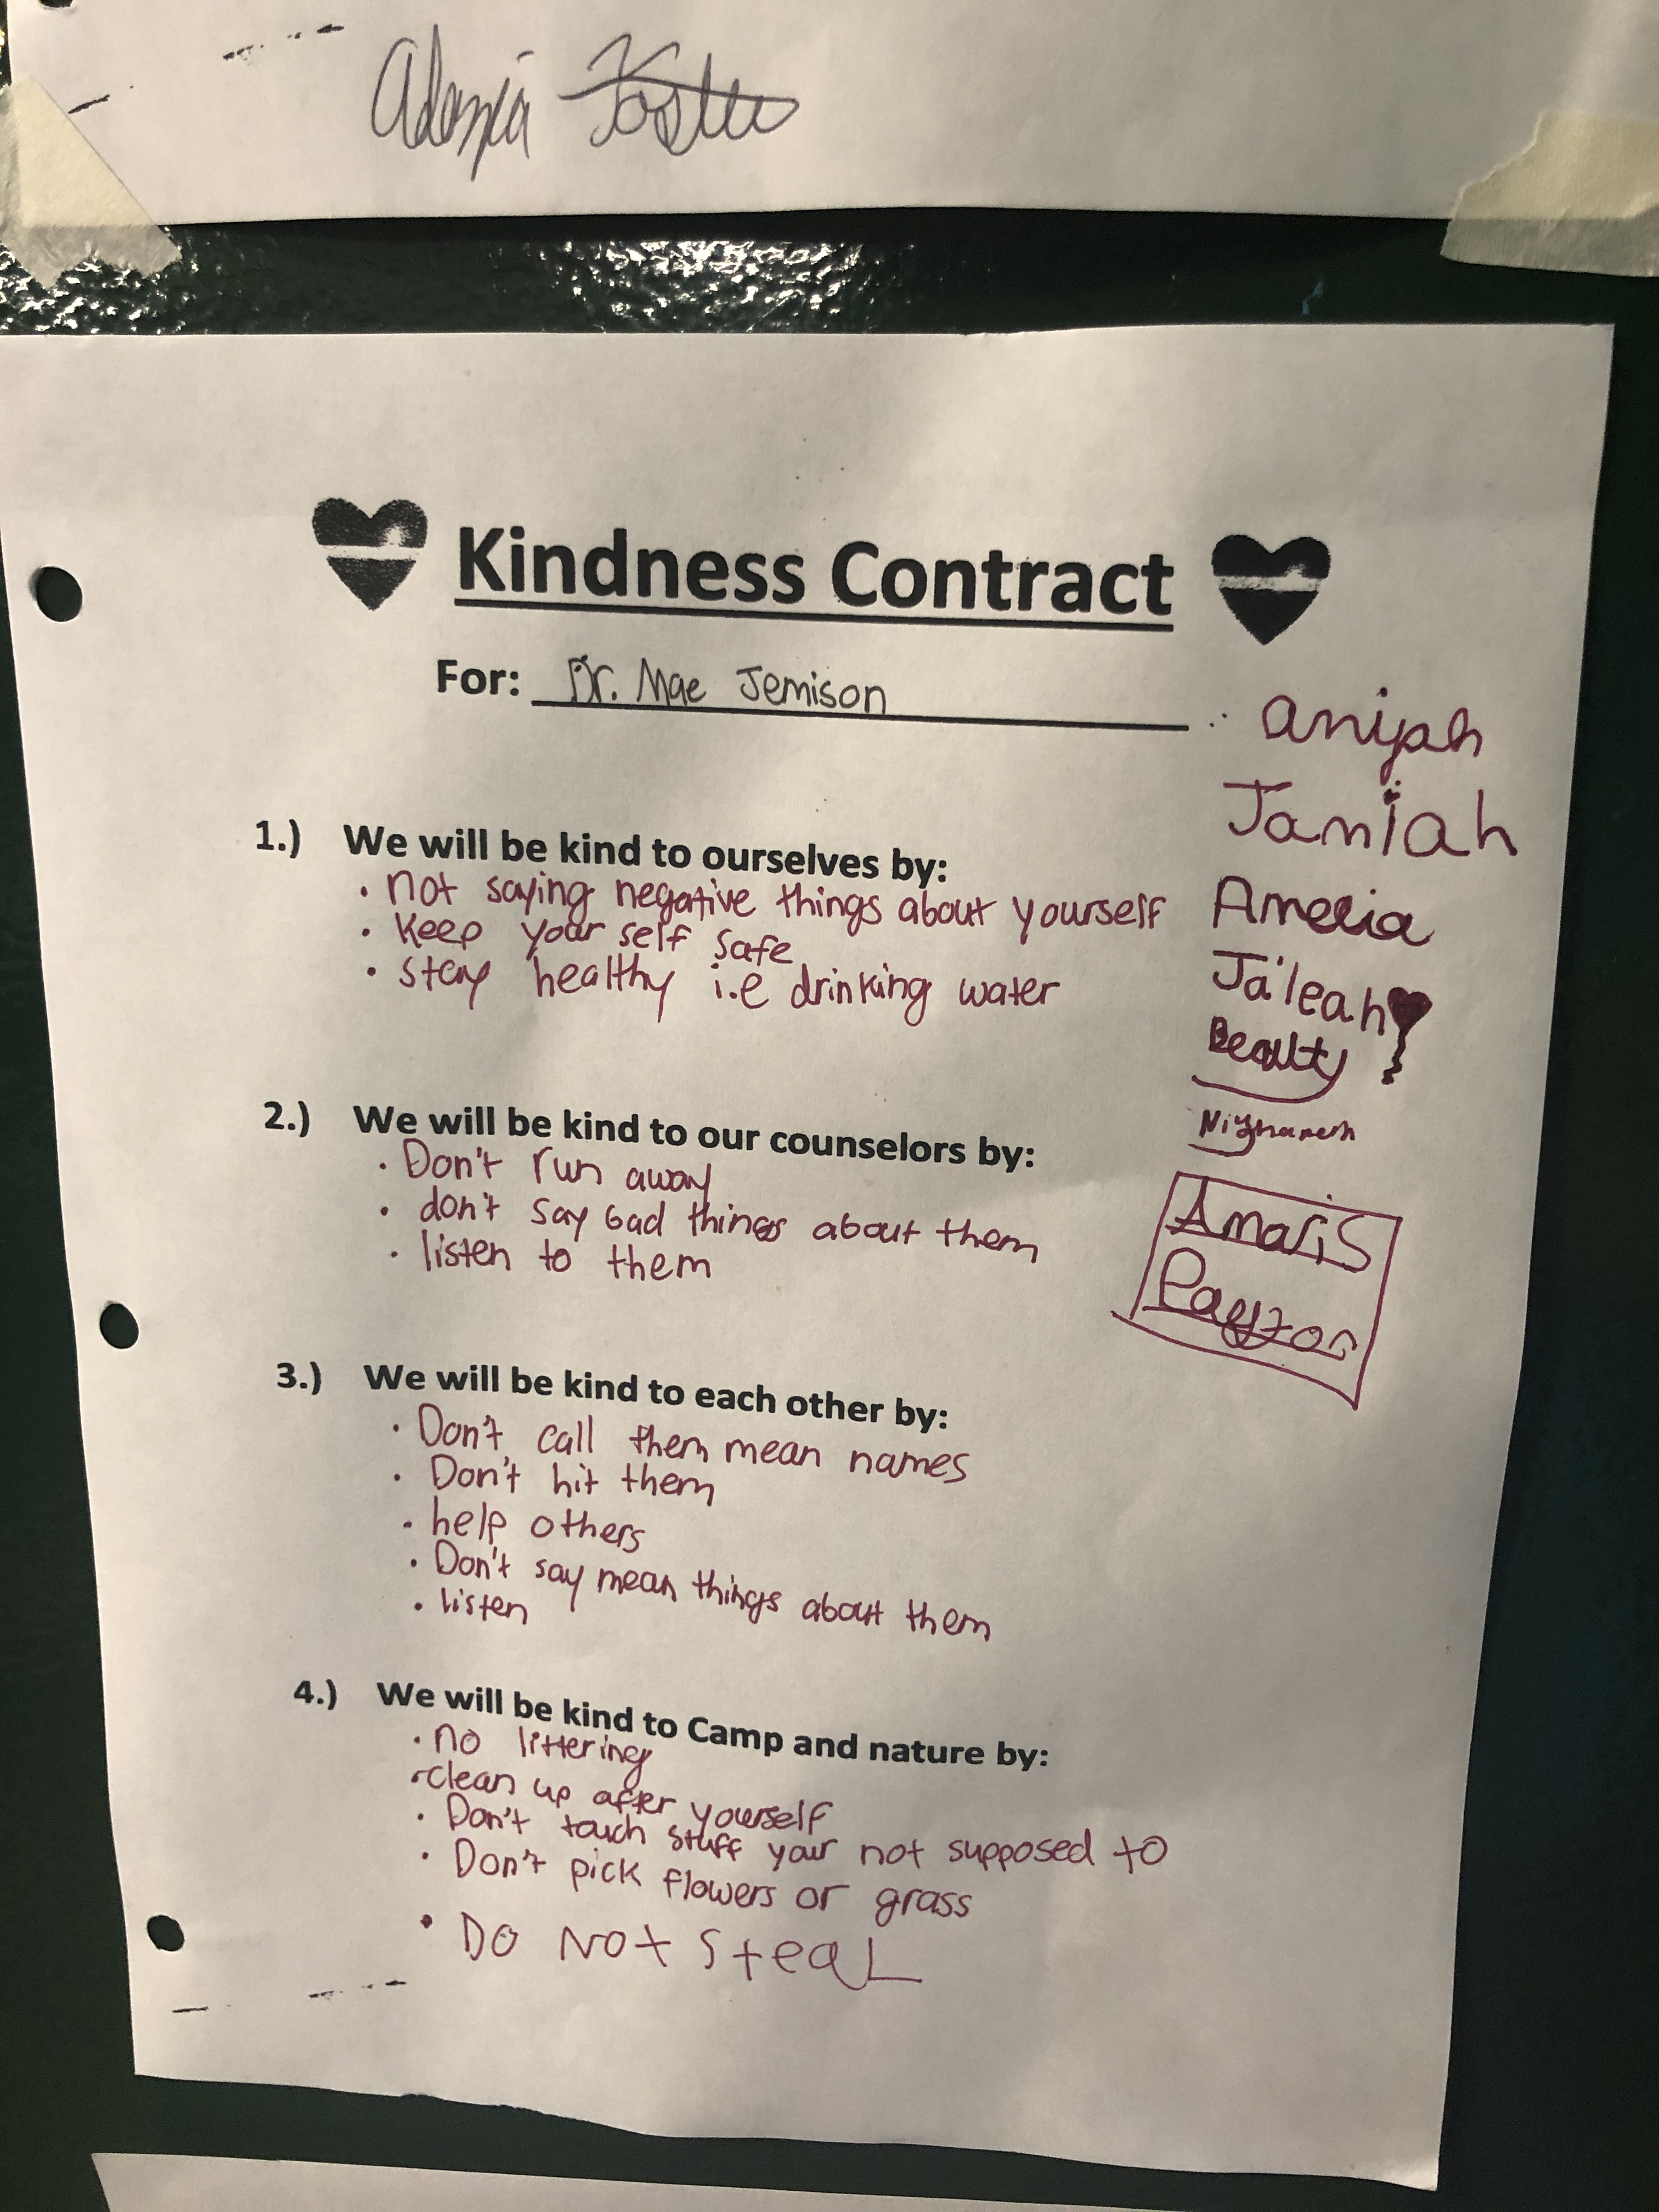 Kindness Contract
For: Dr. Mae Jemison
aniyah
Jamiah
Amelia
Ja'leah
Beauty
Amaris
Payton
1.) We will be kind to ourselves by:
· not saying negative things about yourself
· Keep your self safe
· stay healthy i.e drinking water
2.) We will be kind to our counselors by:
· Don't run away
· don't say bad things about them
· listen to them
3.) We will be kind to each other by:
· Don't call them mean names
· Don't hit them
· help others
· Don't say mean things about them
· listen
4.) We will be kind to Camp and nature by:
· no littering
· clean up after yourself
· Don't touch stuff your not supposed to
· Don't pick flowers or grass
· Do Not Steal